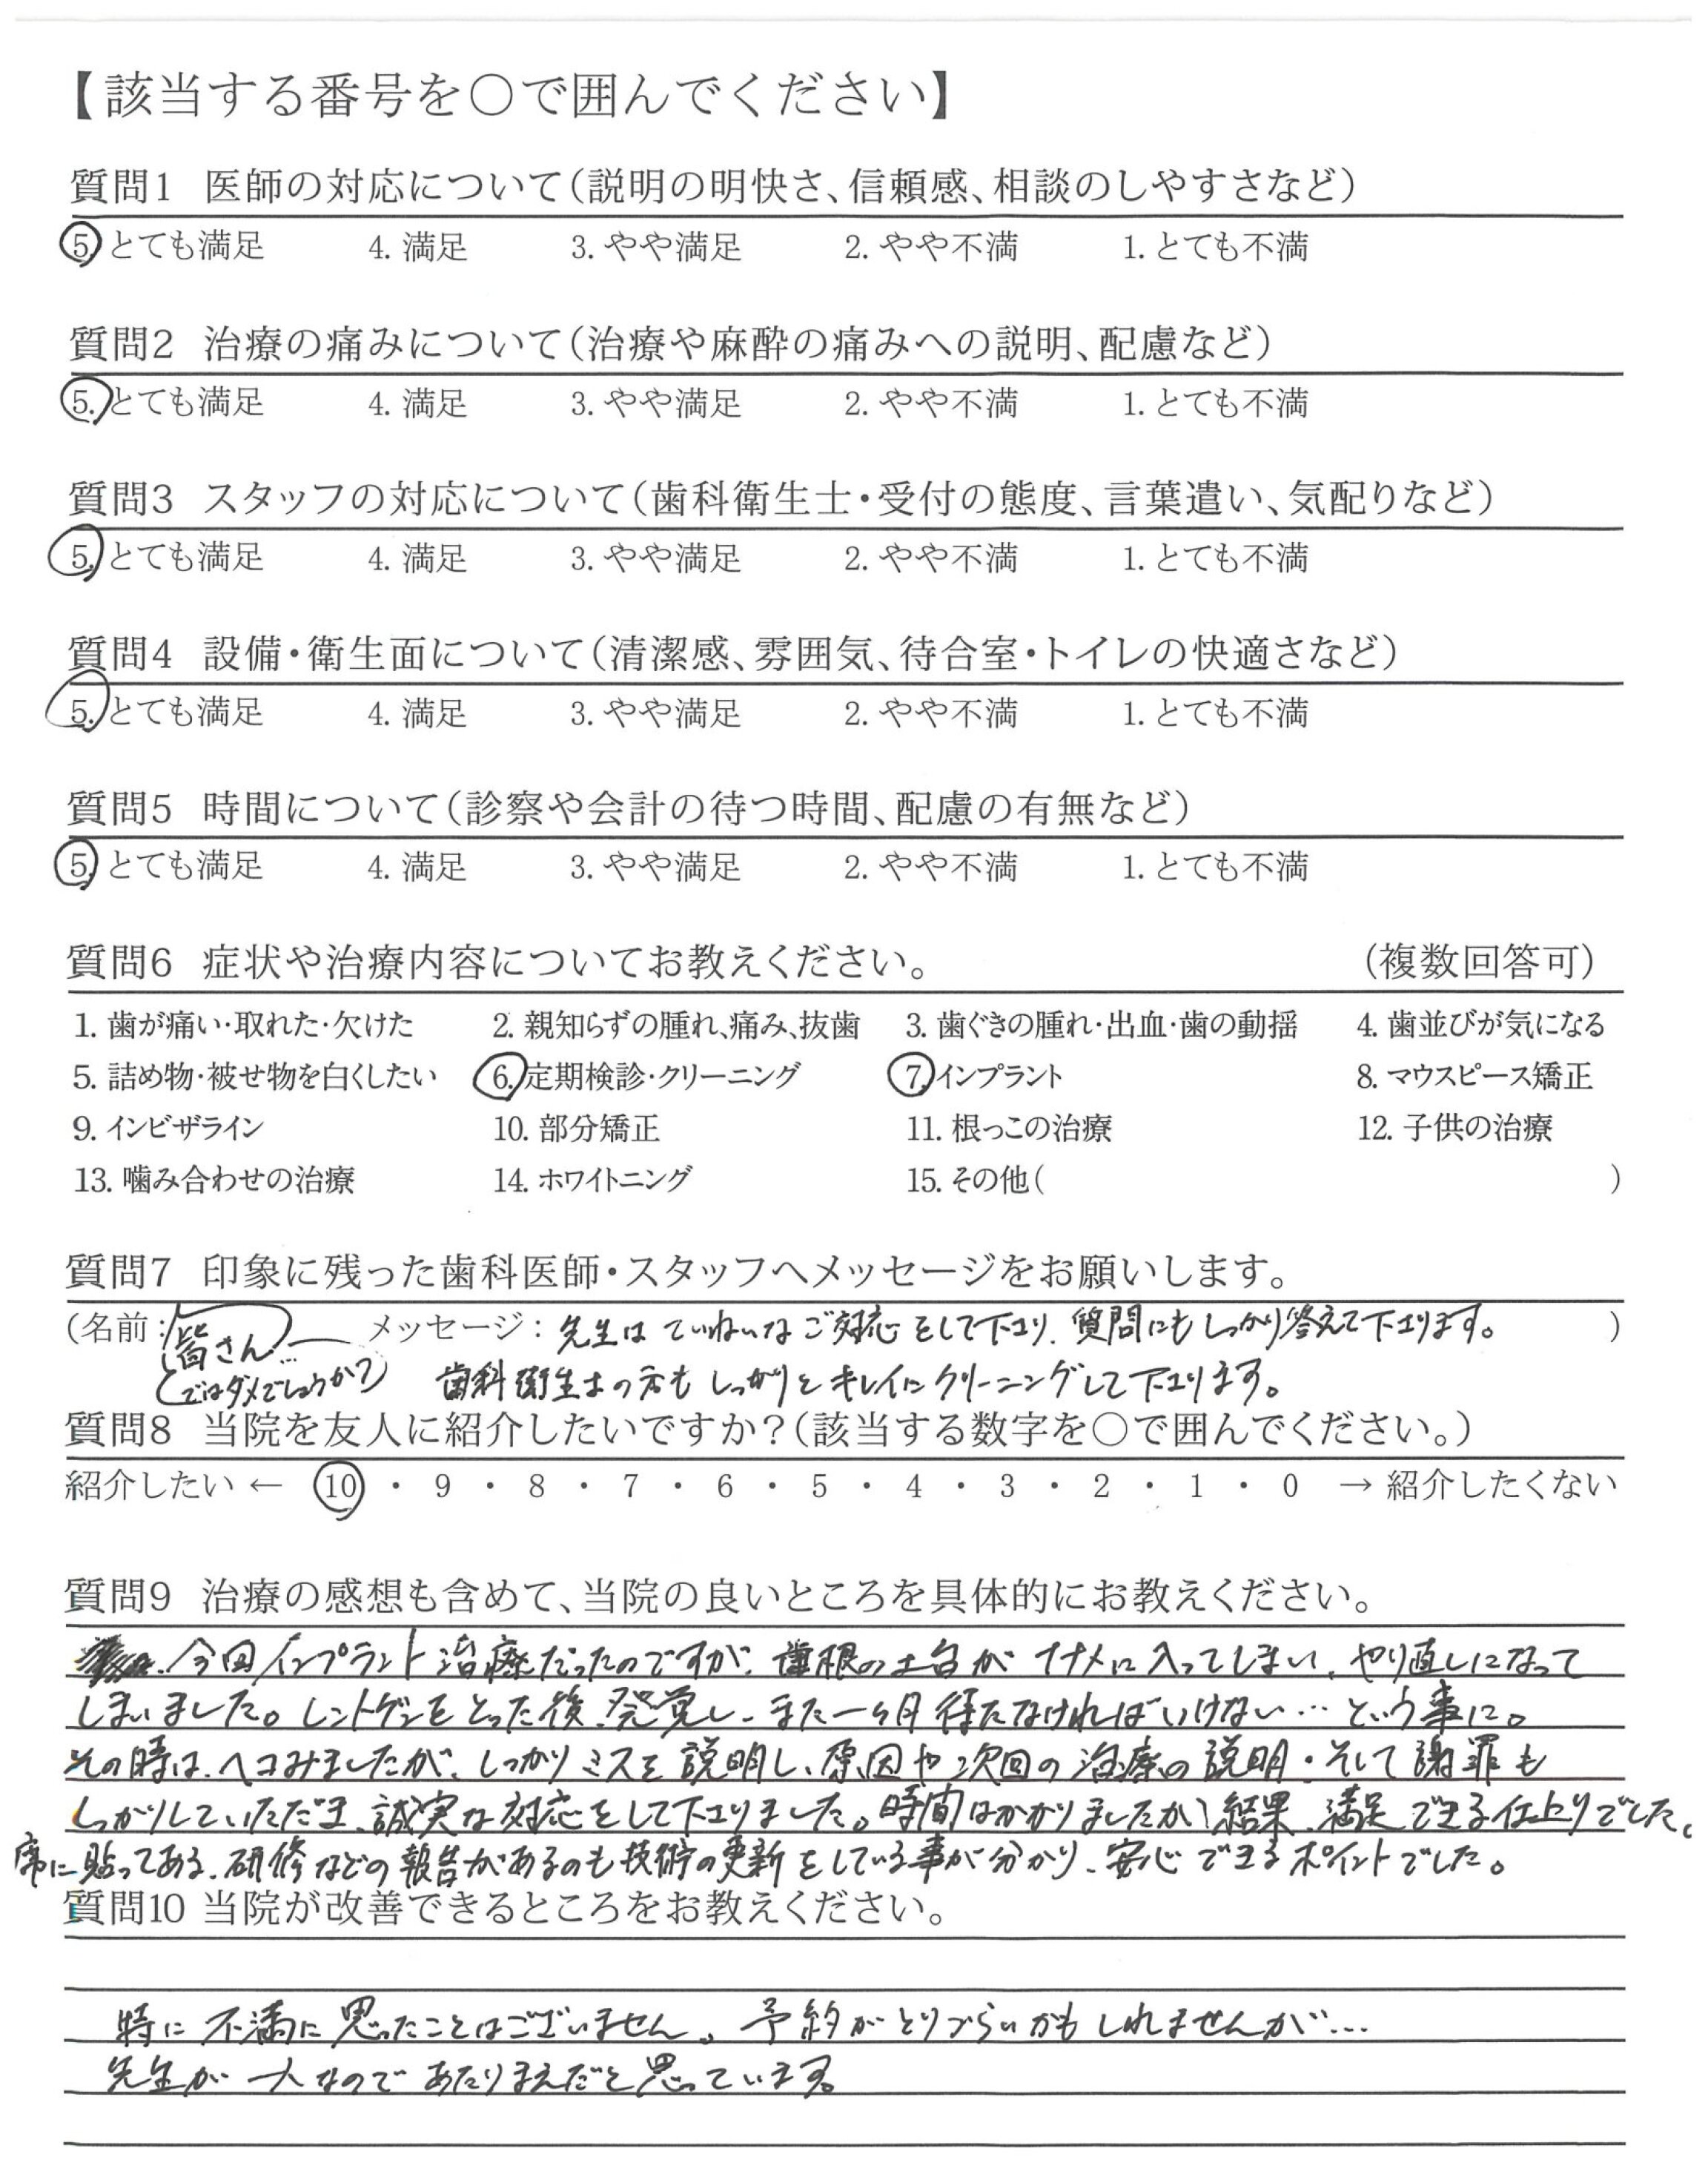 【該当する番号を○で囲んでください】
質問1 医師の対応について(説明の明快さ、信頼感、相談のしやすさなど)
5. とても満足 4. 満足 3. やや満足 2. やや不満 1. とても不満
質問2 治療の痛みについて(治療や麻酔の痛みへの説明、配慮など)
5. とても満足 4. 満足 3. やや満足 2. やや不満 1. とても不満
質問3 スタッフの対応について(歯科衛生士・受付の態度、言葉遣い、気配りなど)
5. とても満足 4. 満足 3. やや満足 2. やや不満 1. とても不満
質問4 設備・衛生面について(清潔感、雰囲気、待合室・トイレの快適さなど)
5. とても満足 4. 満足 3. やや満足 2. やや不満 1. とても不満
質問5 時間について(診察や会計の待つ時間、配慮の有無など)
5. とても満足 4. 満足 3. やや満足 2. やや不満 1. とても不満
質問6 症状や治療内容についてお教えください。 (複数回答可)
1. 歯が痛い・取れた・欠けた 2. 親知らずの腫れ、痛み、抜歯 3. 歯ぐきの腫れ・出血・歯の動揺 4. 歯並びが気になる
5. 詰め物・被せ物を白くしたい 6. 定期検診・クリーニング 7. インプラント 8. マウスピース矯正
9. インビザライン 10. 部分矯正 11. 根っこの治療 12. 子供の治療
13. 噛み合わせの治療 14. ホワイトニング 15. その他( )
質問7 印象に残った歯科医師・スタッフへメッセージをお願いします。
(名前: 皆さん… メッセージ: 先生はていねいなご対応をして下さり、質問にもしっかり答えて下さります。 )
(ではダメでしょうか?) 歯科衛生士の方もしっかりとキレイにクリーニングして下さります。
質問8 当院を友人に紹介したいですか?(該当する数字を○で囲んでください。)
紹介したい ← 10 ・ 9 ・ 8 ・ 7 ・ 6 ・ 5 ・ 4 ・ 3 ・ 2 ・ 1 ・ 0 → 紹介したくない
質問9 治療の感想も含めて、当院の良いところを具体的にお教えください。
今回インプラント治療だったのですが、歯根の土台がナナメに入ってしまい、やり直しになって
しまいました。レントゲンをとった後、発覚し、また一ヶ月待たなければいけない…という事に。
その時は、ヘコみましたが、しっかりミスを説明し、原因や次回の治療の説明・そして謝罪も
しっかりしていただき、誠実な対応をして下さりました。時間はかかりましたが、結果、満足できる仕上りでした。
席に貼ってある、研修などの報告があるのも技術の更新をしている事が分かり、安心できるポイントでした。
質問10 当院が改善できるところをお教えください。
特に不満に思ったことはございません。予約がとりづらいかもしれませんが…
先生が一人なのであたりまえだと思っています。